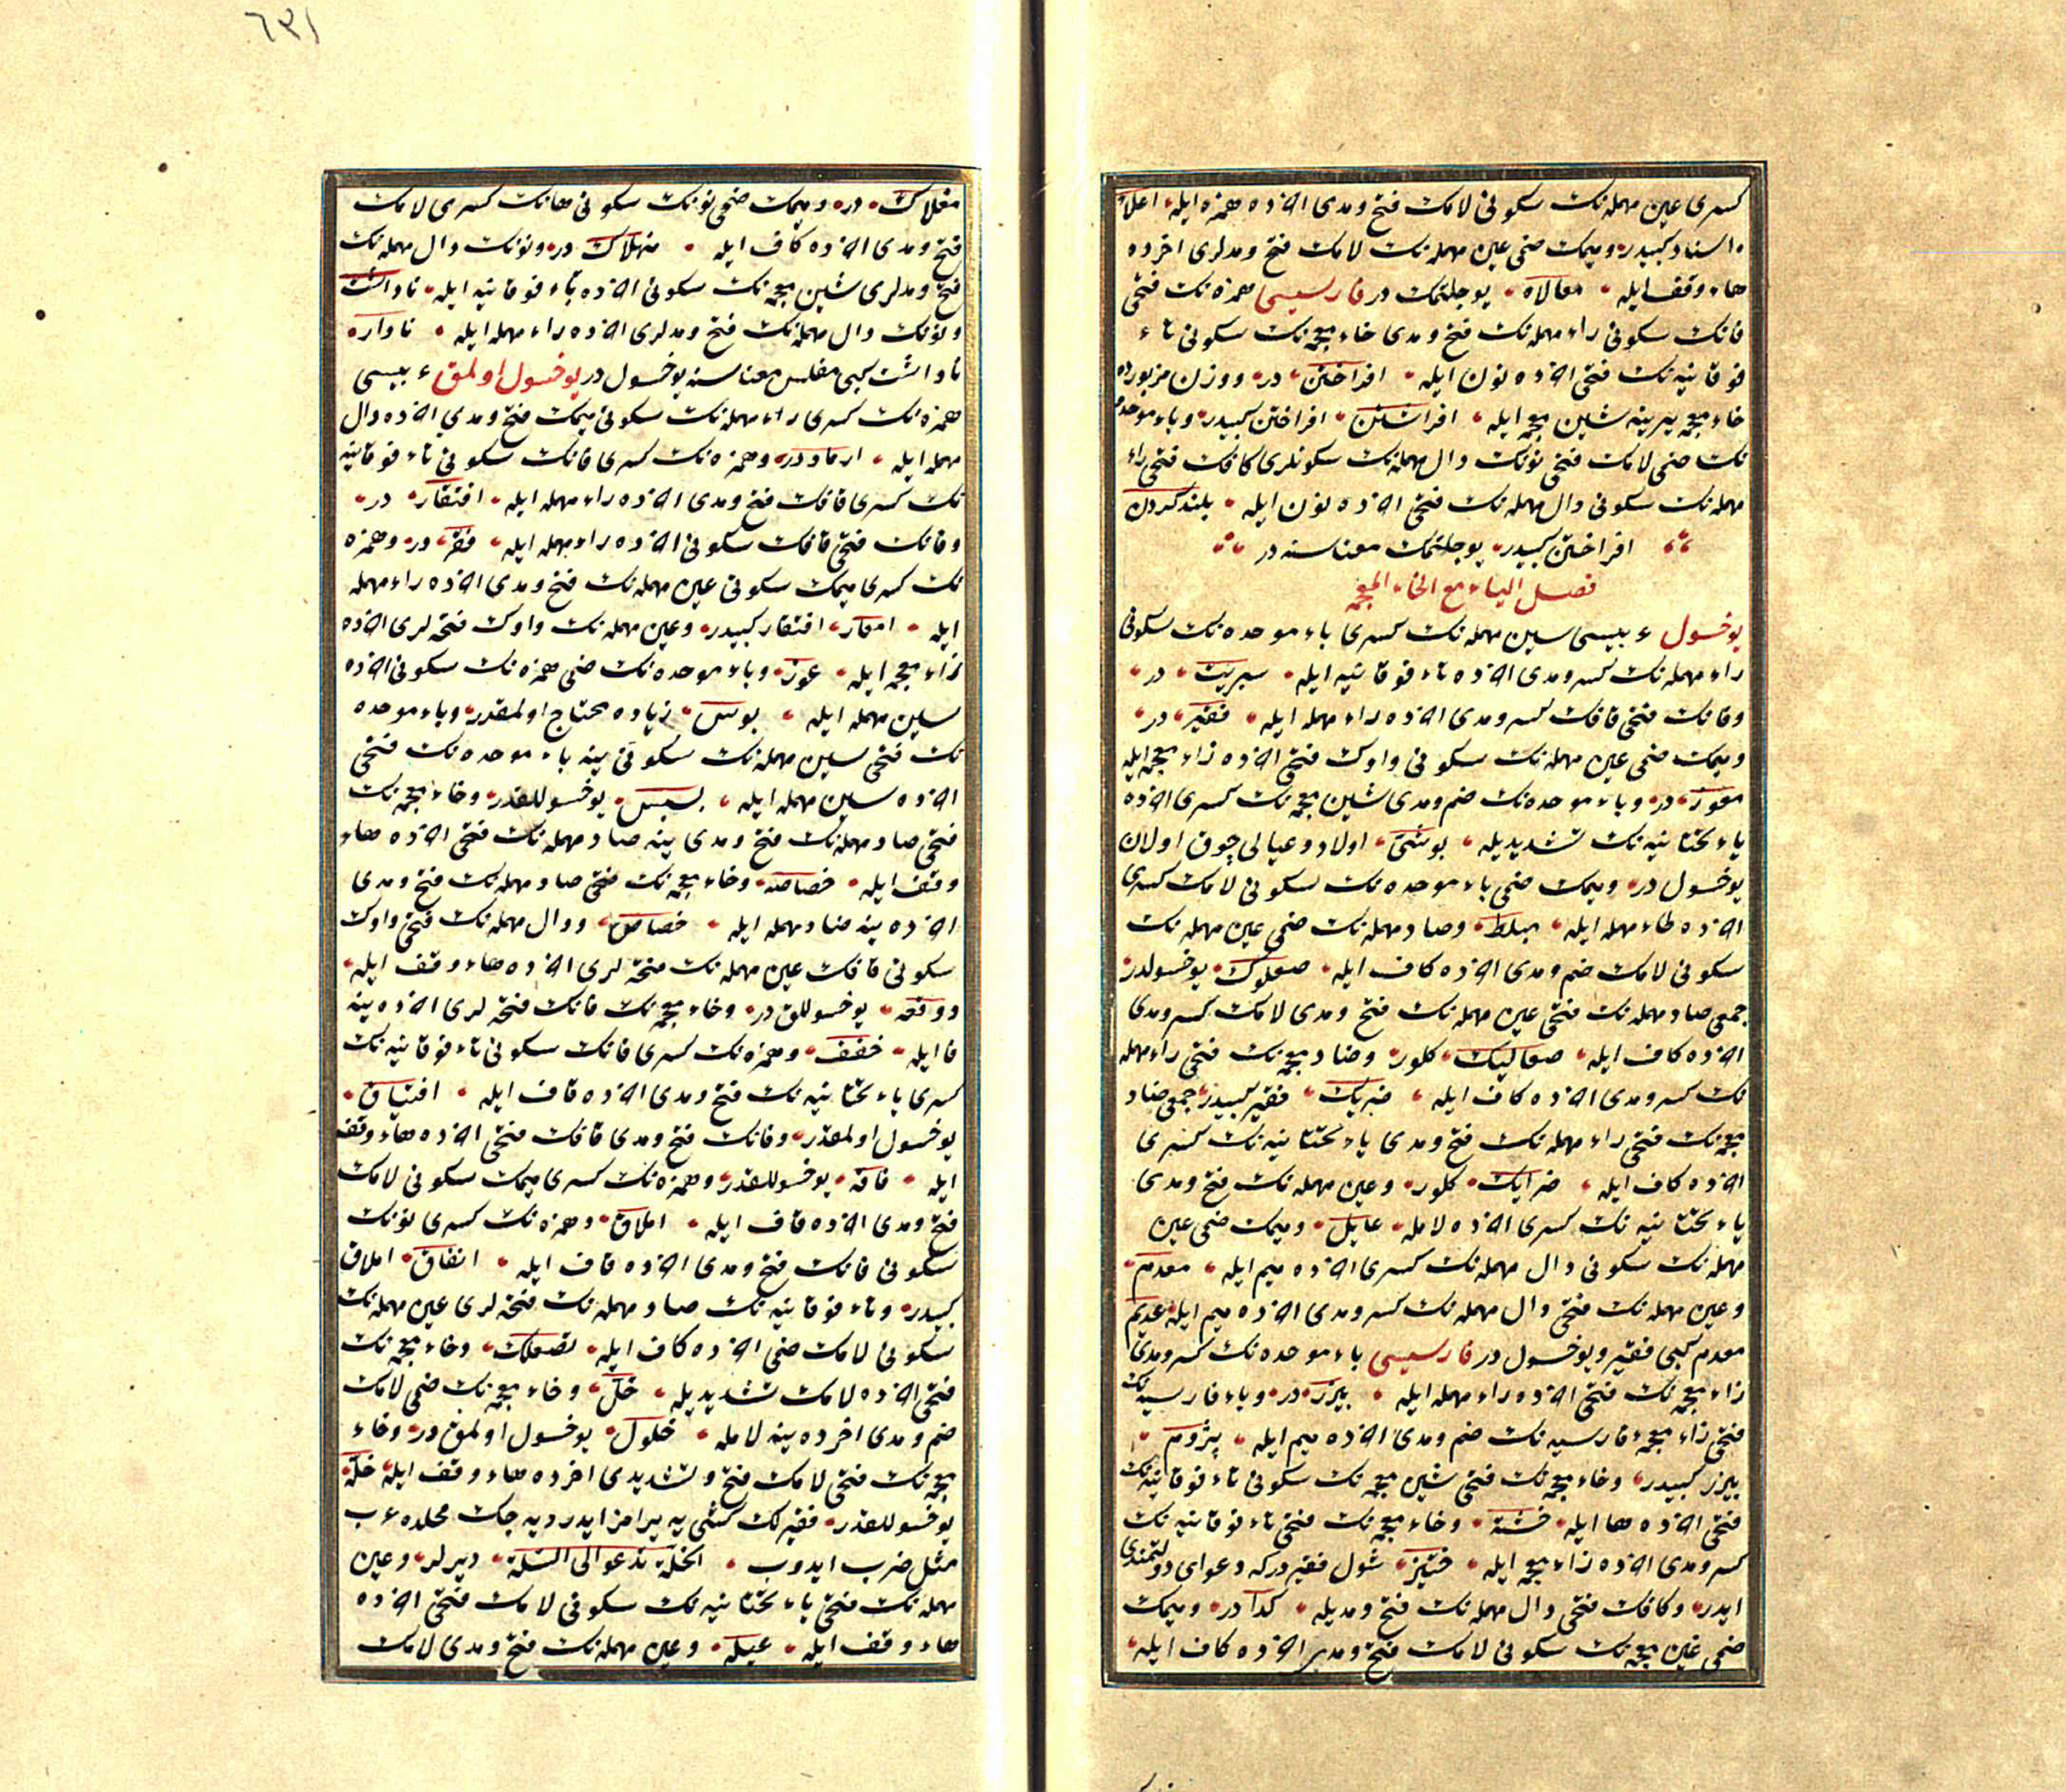 كسری عين مهمله‌نك سكونی لامك فتح و مدی آخرده همزه ايله اعلاء
اسناد كبيدر و ميمك ضمی عين مهمله‌نك لامك فتح و مدلری اخرده
هاء وقف ايله معالاه يوجلتمك در فارسيسی همزه‌نك فتحی
فانك سكونی راء مهمله‌نك فتح و مدی خاء معجمه‌نك سكونی تاء
فوقانيه‌نك فتحی آخرده نون ايله افراختن در و وزن مزبورده
خاء معجمه يرينه شين معجمه ايله افراشتن افراختن كبيدر و باء موحده
نك ضمی لامك فتحی نونك دال مهمله‌نك سكونلری كافك فتحی راء
مهمله‌نك سكونی دال مهمله‌نك فتحی آخرده نون ايله بلند كردن
افراختن كبيدر يوجلتمك معناسنه در
فصل الياء مع الخاء المعجمه
يوخسول ء بيسی سين مهمله‌نك كسری باء موحده‌نك سكونی
راء مهمله‌نك كسر و مدی آخرده تاء فوقانيه ايله سبريت در
و فانك فتحی قافك كسر و مدی آخرده راء مهمله ايله فقير در
و ميمك ضمی عين مهمله‌نك سكونی واوك فتحی آخرده زاء معجمه ايله
معوز در و باء موحده‌نك ضم و مدی شين معجمه‌نك كسری آخرده
ياء تحتانيه‌نك تشديديله بوشی اولاد و عيالی چوق اولان
يوخسول در و ميمك ضمی باء موحده‌نك سكونی لامك كسری
آخرده طاء مهمله ايله مبلط و صاد مهمله‌نك ضمی عين مهمله‌نك
سكونی لامك ضم و مدی آخرده كاف ايله صعلوك يوخسولدر
جمعی صاد مهمله‌نك فتحی عين مهمله‌نك فتح و مدی لامك كسر و مدی
آخرده كاف ايله صعاليك كلور و ضاد معجمه‌نك فتحی راء مهمله
نك كسر و مدی آخرده كاف ايله ضريك فقير كبيدر جمعی ضاد
معجمه‌نك فتحی راء مهمله‌نك فتح و مدی ياء تحتانيه‌نك كسری
آخرده كاف ايله ضرايك كلور و عين مهمله‌نك فتح و مدی
ياء تحتانيه‌نك كسری آخرده لامله عايل و ميمك ضمی عين
مهمله‌نك سكونی دال مهمله‌نك كسری آخرده ميم ايله معدم
و عين مهمله‌نك فتحی دال مهمله‌نك كسر و مدی آخرده ميم ايله عديم
معدم كبی فقير و يوخسول در فارسيسی باء موحده‌نك كسر و مدی
زاء معجمه‌نك فتحی آخرده راء مهمله ايله بيزر در و باء فارسيه‌نك
فتحی زاء معجمهء فارسيه‌نك ضم و مدی آخرده ميم ايله پژوم
بيزر كبيدر و خاء معجمه‌نك فتحی شين معجمه‌نك سكونی تاء فوقانيه‌نك
فتحی آخرده ها ايله خشته و خاء معجمه‌نك فتحی تاء فوقانيه‌نك
كسر و مدی آخرده زاء معجمه ايله ختيز شول فقير در كه دعوای دولتمندی
ايدر و كافك فتحی دال مهمله‌نك فتح و مديله كدا در و ميمك
ضمی غين معجمه‌نك سكونی لامك فتح و مدی آخرده كاف ايله
مغلاك در و ميمك ضمی نونك سكونی هانك كسری لامك
فتح و مدی آخرده كاف ايله منهلاك در و نونك دال مهمله‌نك
فتح و مدلری شين معجمه‌نك سكونی آخرده تاء فوقانيه ايله ناداشت
و نونك دال مهمله‌نك فتح و مدلری آخرده راء مهمله ايله نادار
ناداشت كبی مفلس معناسنه يوخسول در يوخسول اولمق ء بيسی
همزه‌نك كسری راء مهمله‌نك سكونی ميمك فتح و مدی آخرده دال
مهمله ايله ارماد در و همزه‌نك كسری فانك سكونی تاء فوقانيه
نك كسری قافك فتح و مدی آخرده راء مهمله ايله افتقار در
و فانك فتحی قافك سكونی آخرده راء مهمله ايله فقر در و همزه
نك كسری ميمك سكونی عين مهمله‌نك فتح و مدی آخرده راء مهمله
ايله امعار افتقار كبيدر و عين مهمله‌نك واوك فتحه‌لری آخرده
زاء معجمه ايله عوز و باء موحده‌نك ضمی همزه‌نك سكونی آخرده
سين مهمله ايله بوس زياده محتاج اولمقدر و باء موحده
نك فتحی سين مهمله‌نك سكونی ينه باء موحده‌نك فتحی
آخرده سين مهمله ايله بسبس يوخسوللقدر و خاء معجمه‌نك
فتحی صاد مهمله‌نك فتح و مدی ينه صاد مهمله‌نك فتحی آخرده هاء
وقف ايله خصاصه و خاء معجمه‌نك فتحی صاد مهمله‌نك فتح و مدی
آخرده ينه صاد مهمله ايله خصاص و دال مهمله‌نك فتحی واوك
سكونی قافك عين مهمله‌نك فتحه‌لری آخرده هاء وقف ايله
دوقعه يوخسوللق در و خاء معجمه‌نك فانك فتحه‌لری آخرده ينه
فا ايله خفف و همزه‌نك كسری فانك سكونی تاء فوقانيه‌نك
كسری ياء تحتانيه‌نك فتح و مدی آخرده قاف ايله افتياق
يوخسول اولمقدر و فانك فتح و مدی قافك فتحی آخرده هاء وقف
ايله فاقه يوخسوللقدر و همزه‌نك كسری ميمك سكونی لامك
فتح و مدی آخرده قاف ايله املاق و همزه‌نك كسری نونك
سكونی فانك فتح و مدی آخرده قاف ايله انفاق املاق
كبيدر و تاء فوقانيه‌نك صاد مهمله‌نك فتحه‌لری عين مهمله‌نك
سكونی لامك ضمی آخرده كاف ايله تصعلك و خاء معجمه‌نك
فتحی آخرده لامك تشديديله خل و خاء معجمه‌نك ضمی لامك
ضم و مدی اخرده ينه لامله خلول يوخسول اولمق در و خاء
معجمه‌نك فتحی لامك فتح و تشديدی اخرده هاء وقف ايله خلة
يوخسوللقدر فقيرلك كشی يه يرامز ايدر ديه جك محلده عرب
مثل ضرب ايدوب الخلة تدعو الی السلة ديرلر و عين
مهمله‌نك فتحی ياء تحتانيه‌نك سكونی لامك فتحی آخرده
هاء وقف ايله عيله و عين مهمله‌نك فتح و مدی لامك